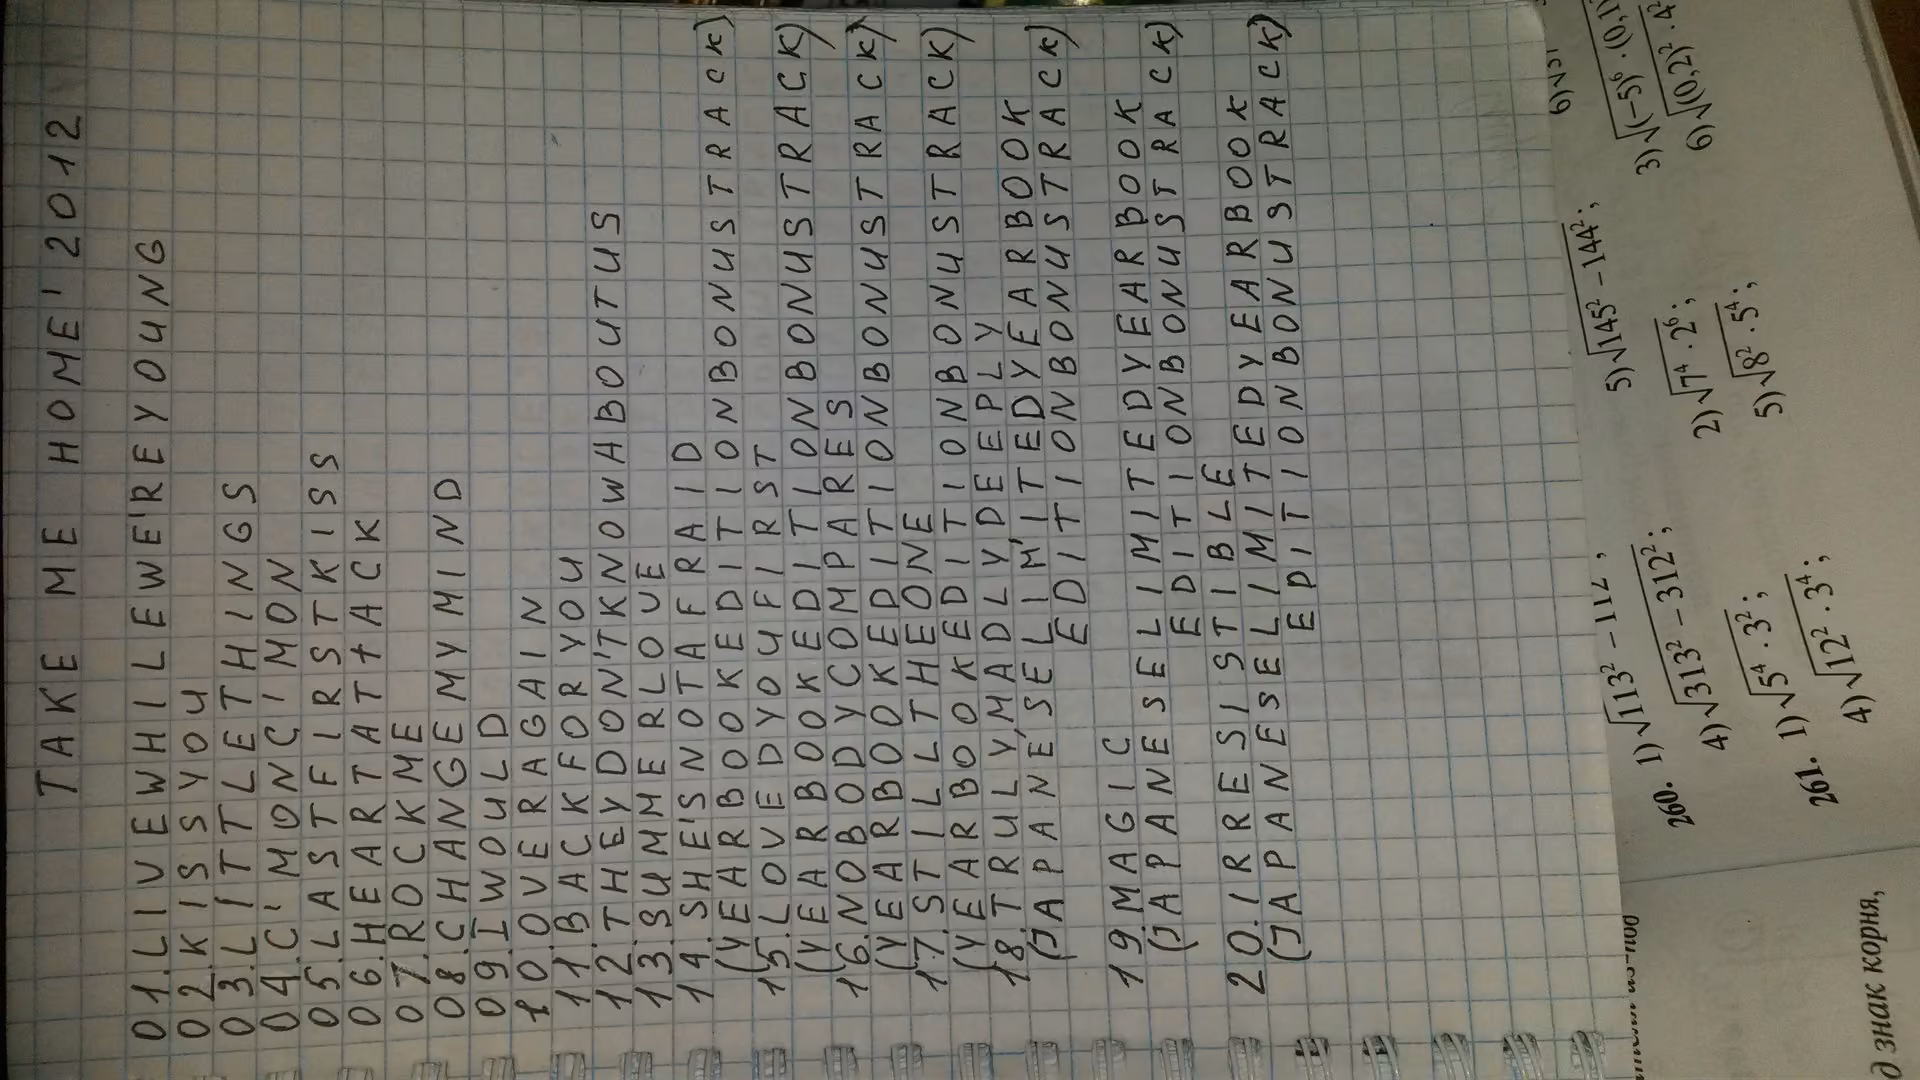 TAKE ME HOME' 2012
01.LIVEWHILEWE'REYOUNG
02.KISSYOU
03.LITTLETHINGS
04.C'MONC'MON
05.LASTFIRSTKISS
06.HEARTATTACK
07.ROCKME
08.CHANGEMYMIND
09.IWOULD
10.OVERAGAIN
11.BACKFORYOU
12.THEYDON'TKNOWABOUTUS
13.SUMMERLOVE
14.SHE'SNOTAFRAID
(YEARBOOKEDITIONBONUSTRACK)
15.LOVEDYOUFIRST
(YEARBOOKEDITIONBONUSTRACK)
16.NOBODYCOMPARES
(YEARBOOKEDITIONBONUSTRACK)
17.STILLTHEONE
(YEARBOOKEDITIONBONUSTRACK)
18.TRULY,MADLYDEEPLY
(JAPANE'SELIM'ITEDYEARBOOK
EDITIONBONUSTRACK)
19.MAGIC
(JAPANESELIMITEDYEARBOOK
EDITIONBONUSTRACK)
20.IRRESISTIBLE
(JAPANESELIMITEDYEARBOOK
EDITIONBONUSTRACK)
260. 1)√113² − 112²;
4)√313² − 312²;
5)√145² − 144²;
261. 1)√5⁴ · 3²;
2)√7⁴ · 2⁶;
3)√(−5)⁶ · (0,1)
4)√12² · 3⁴;
5)√8² · 5⁴;
6)√(0,2)² · 4
знак корня,